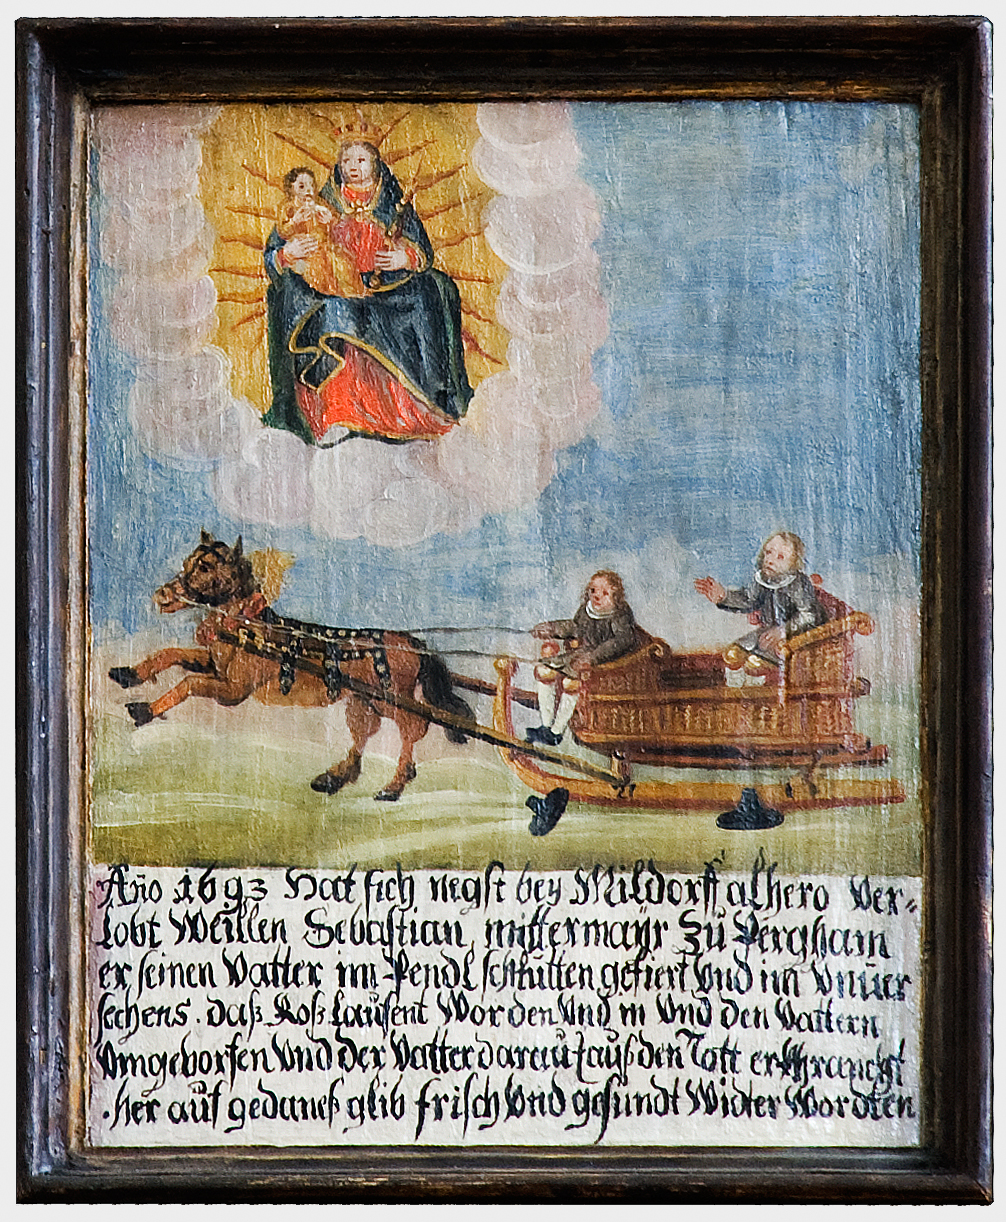 Año 1693 Hat sich negst bey Mildorff alhero Ver-
lobt Weillen Sebastian mittermayr Zu Pergham
er seinen Vatter im Pendl schlütten gefiert Vnd im vnuer
sechens. daß Roß Lauffent Worden Vnd in Vnd den Vattern
Vmgeworfen Vnd der Vatter darauf auß den Tott erKhranckht
her auf gedaneß glib frisch Vnd gesundt Widter Wordten